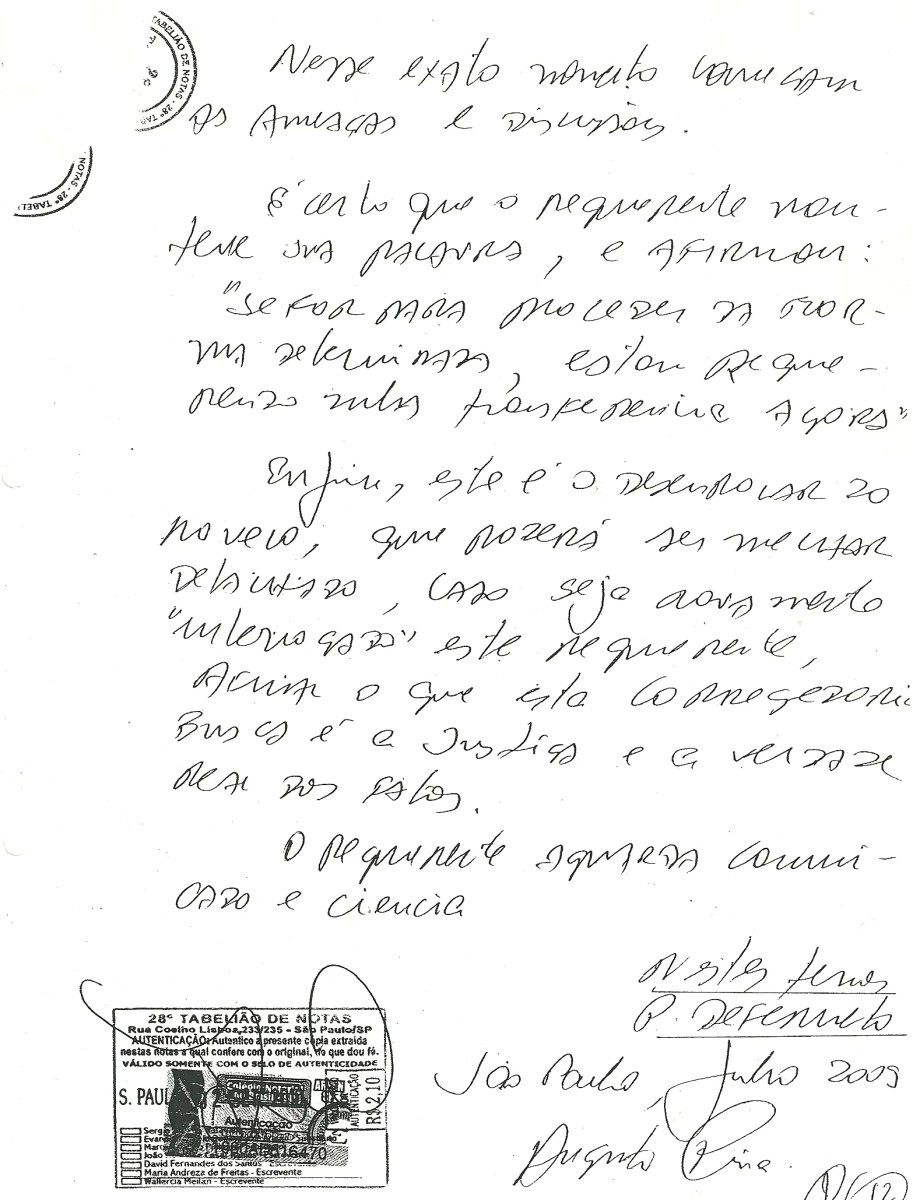 TABELIÃO DE NOTAS - 28º TAB
NOTAS - 28º TABEL
Nesse exato momento começam
as ameaças e discussões.
É certo que o requerente man-
teve sua palavra, e afirmou:
"Se for para proceder da for-
ma determinada, estou reque-
rendo minha transferência agora"
Enfim, este é o desenrolar do
novelo, que poderá ser melhor
detalhado, caso seja novamente
"interrogado" este requerente,
afinal o que esta Corregedoria
busca é a Justiça e a verdade
real dos fatos.
O requerente aguarda comuni-
cado e ciencia
Nestes termos
P. Deferimento
São Paulo, Julho 2009
28º TABELIÃO DE NOTAS
Rua Coelho Lisboa, 233/235 - São Paulo/SP
AUTENTICAÇÃO: Autentico a presente cópia extraída
nestas notas a qual confere com o original, do que dou fé.
VÁLIDO SOMENTE COM O SELO DE AUTENTICIDADE
S. PAUL
Colégio Notarial
do Brasil
Autenticação
AUTENTICAÇÃO
R$ 2,10
David Fernandes dos Santos - Escrevente
Maria Andreza de Freitas - Escrevente
Wallercia Meilan - Escrevente
Augusto Pena.